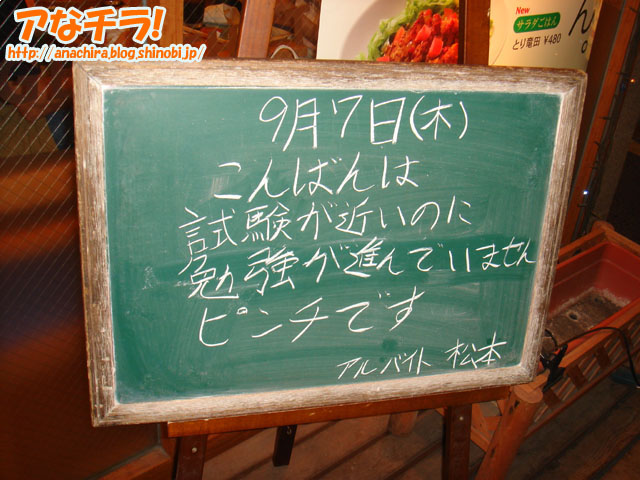 アなチラ!
http://anachira.blog.shinobi.jp/
New
サラダごはん
とり竜田 ¥480
ん。
9月7日(木)
こんばんは
試験が近いのに
勉強が進んでいません
ピンチです
アルバイト 松本